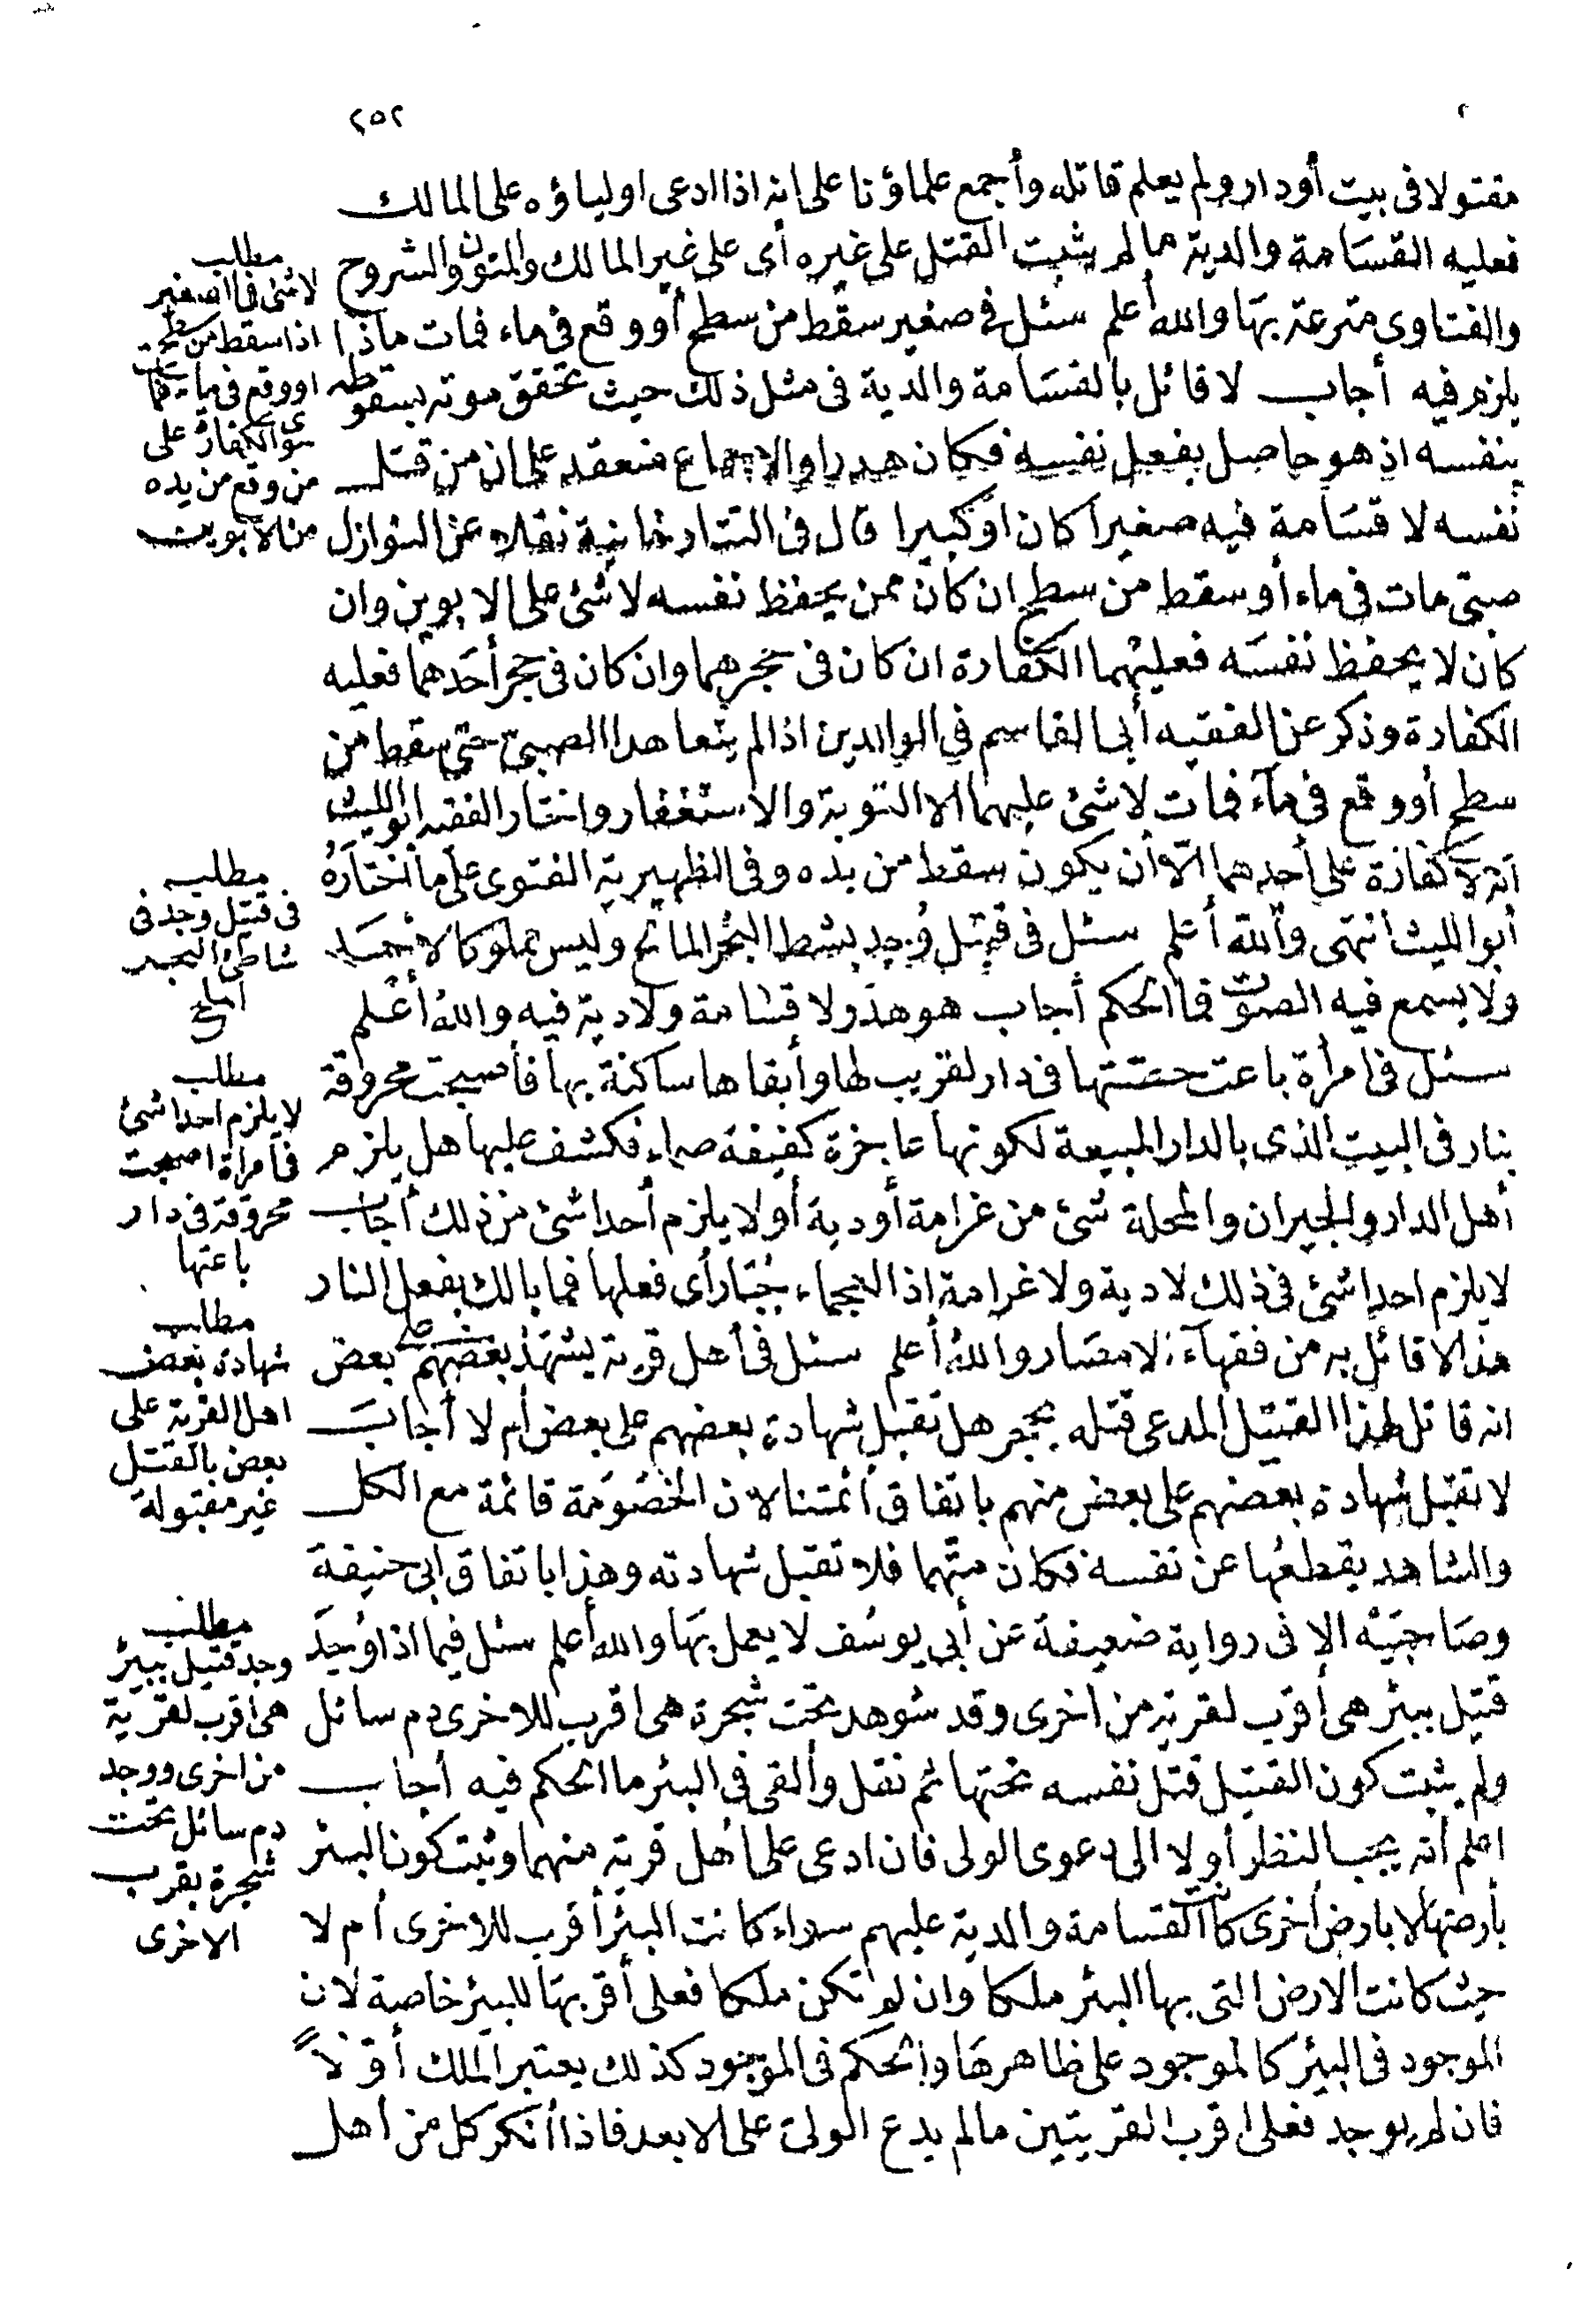 ٢٥٢
مقتولا فى بيت أودار ولم يعلم قاتله وأجمع علماؤنا على انه اذا ادعى اولياؤه على المالك
فعليه القسامة والدية مالم يثبت القتل على غيره أى على غير المالك والمتون والشروح
والفتاوى مترعة بها والله أعلم سئل فى صغير سقط من سطح أووقع فى ماء فمات ماذا
يلزم فيه أجاب لا قائل بالقسامة والدية فى مثل ذلك حيث تحقق موته بسقوطه
بنفسه اذ هو حاصل بفعل نفسه فكان هدرا والاجماع منعقد على ان من قتل
نفسه لا قسامة فيه صغيرا كان اوكبيرا قال فى التتارخانية نقلا عن النوازل
صبى مات فى ماء أو سقط من سطح ان كان ممن يحفظ نفسه لا شئ على الابوين وان
كان لا يحفظ نفسه فعليهما الكفارة ان كان فى حجرهما وان كان فى حجر أحدهما فعليه
الكفارة وذكر عن الفقيه أبى القاسم فى الوالدين اذا لم يتعاهدا الصبى حتى سقط من
سطح أووقع فى ماء فمات لا شئ عليهما الا التوبة والاستغفار واختار الفقيه ابوالليث
انه لا كفارة على أحدهما الا أن يكون سقط من يده وفى الظهيرية الفتوى على ما اختاره
أبوالليث انتهى والله أعلم سئل فى قتيل وجد بشط البحر المالح وليس مملوكا لاحد
ولا يسمع فيه الصوت فما الحكم أجاب هو هدر لا قسامة ولا دية فيه والله أعلم
سئل فى امرأة باعت حصتها فى دار لقريب لها وأبقاها ساكنة بها فأصبحت محروقة
بنار فى البيت الذى بالدار المبيعة لكونها عاجزة كفيفة صماء فكشف عليها هل يلزم
أهل الدار والجيران والمحلة شئ من غرامة أودية أولا يلزم أحدا شئ من ذلك أجاب
لا يلزم احدا شئ فى ذلك لا دية ولا غرامة اذ العجماء جبار أى فعلها فما بالك بفعل النار
هذا لا قائل به من فقهاء الامصار والله أعلم سئل فى أهل قرية يشهد بعضهم على بعض
انه قاتل لهذا القتيل المدعى قتله بحجر هل تقبل شهادة بعضهم على بعض أم لا أجاب
لا تقبل شهادة بعضهم على بعض منهم باتفاق أئمتنا لان الخصومة قائمة مع الكل
والشاهد يقطعها عن نفسه فكان متهما فلا تقبل شهادته وهذا باتفاق ابى حنيفة
وصاحبيه الا فى رواية ضعيفة عن أبى يوسف لا يعمل بها والله أعلم سئل فيما اذا وجد
قتيل ببئر هى أقرب لقرية من اخرى وقد شوهد تحت شجرة هى اقرب للاخرى دم سائل
ولم يثبت كون القتيل قتل نفسه تحتها ثم نقل وألقى فى البئر ما الحكم فيه أجاب
اعلم أنه يجب النظر أولا الى دعوى الولى فان ادعى على أهل قرية منهما وثبت كون البئر
بأرضها لا بارض أخرى كانت القسامة والدية عليهم سواء كانت البئر أقرب للاخرى أم لا
حيث كانت الارض التى بها البئر ملكا وان لم تكن ملكا فعلى أقربها للبئر خاصة لان
الموجود فى البئر كالموجود على ظاهرها والحكم فى الموجود كذلك يعتبر الملك أولاً
فان لم يوجد فعلى اقرب القريتين مالم يدع الولى على الابعد فاذا أنكر كل من أهل
مطلب
لا شئ فى الصغير
اذا سقط من سطح
اووقع فى ماء فمات
سوى الكفارة على
من وقع من يده
من الابوين
مطلب
فى قتيل وجد فى
شاطئ البحر
المالح
مطلب
لا يلزم احدا شئ
فى امرأة اصبحت
محروقة فى دار
باعتها
مطلب
شهادة بعض
اهل القرية على
بعض بالقتل
غير مقبولة
مطلب
وجد قتيل ببئر
هى اقرب لقرية
من اخرى ووجد
دم سائل تحت
شجرة بقرب
الاخرى